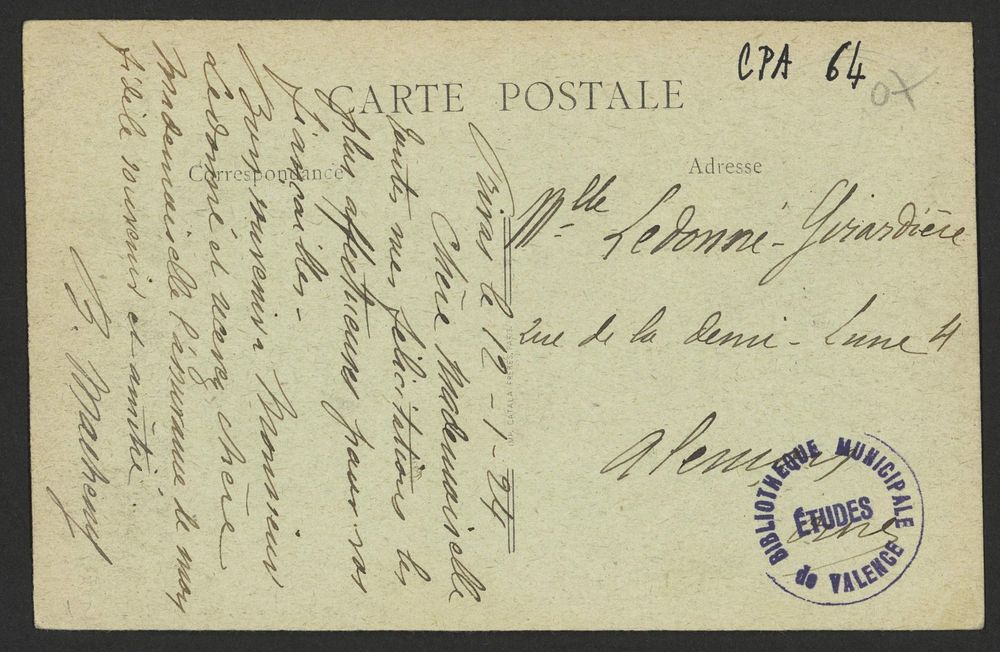 CPA 64
07
CARTE POSTALE
Correspondance
Adresse
le 12-1-24
Chère Mademoiselle
toutes mes félicitations les
plus affectueuses pour vos
fiançailles -
Bon souvenir à Monsieur
Ledonné et recevez chère
Mademoiselle l'assurance de mon
fidèle souvenir et amitié.
Mlle Ledonné-Girardière
rue de la demi-Lune 4
Alençon
Orne
IMP. CATALA FRERES, PARIS
BIBLIOTHEQUE MUNICIPALE
ÉTUDES
de VALENCE